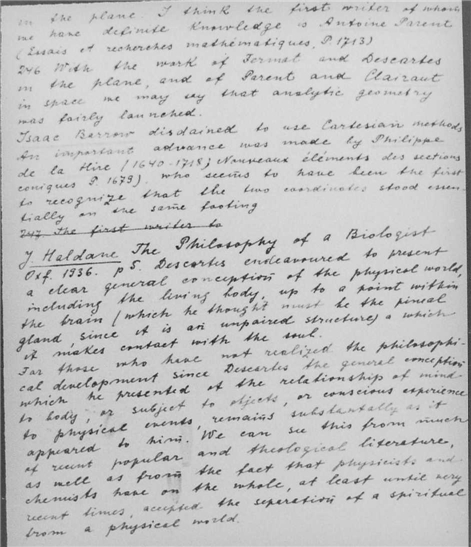 in the plane I think the first writer of whom
we have definite knowledge is Antoine Parent
(Essais et recherches mathématiques, P. 1713)
246 With the work of Fermat and Descartes
in the plane, and of Parent and Clairaut
in space we may say that analytic geometry
was fairly launched.
Isaac Barrow disdained to use Cartesian methods
An important advance was made by Philippe
de la Hire (1640-1718; Nouveaux éléments des sections
coniques P. 1679). who seems to have been the first
to recognize that the two coordinates stood essen-
tially on the same footing
247 The first writer to
J. Haldane The Philosophy of a Biologist
Oxf. 1936. p 5. Descartes endeavoured to present
a clear general conception of the physical world,
including the living body, up to a point within
the brain (which he thought must be the pineal
gland, since it is an unpaired structure) a which
it makes contact with the soul.
For those who have not realized the philosophi-
cal development since Descartes the general conception
which he presented of the relationship of mind
to body, or subject to objects, or conscious experience
to physical events, remains substantially as it
appeared to him. We can see this from much
of recent popular and theological literature,
as well as from the fact that physicists and
chemists have on the whole, at least until very
recent times, accepted the separation of a spiritual
from a physical world.